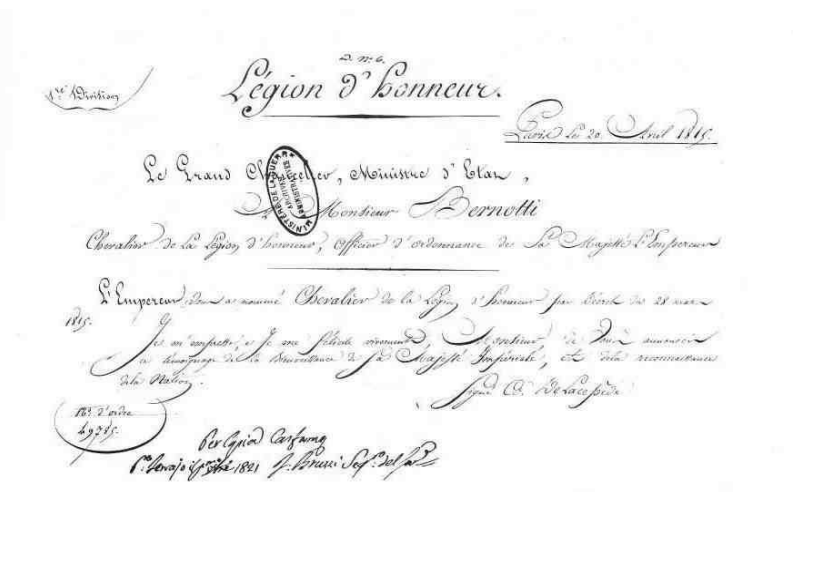 D. N.º 6.
1.re Division
Légion d'honneur.
Paris le 20 Avril 1815.
Le Grand Chancelier, Ministre d'Etat,
MINISTÈRE DE LA GUERRE
ARCHIVES
ADMINISTRATIVES
A Monsieur Bernotti
Chevalier de la Légion d'honneur, Officier d'ordonnance de Sa Majesté L'Empereur
L'Empereur vous a nommé Chevalier de la Légion d'honneur par Décret du 28 mars
1815.
Je m'empresse, et Je me félicite vivement Monsieur, de Vous annoncer
ce témoignage de la Bienveillance de Sa Majesté Impériale, et de la reconnaissance
de la Nation.
Signé Cte. De Lacepède
No. d'ordre
49785.
Per Copia Conforme
1821